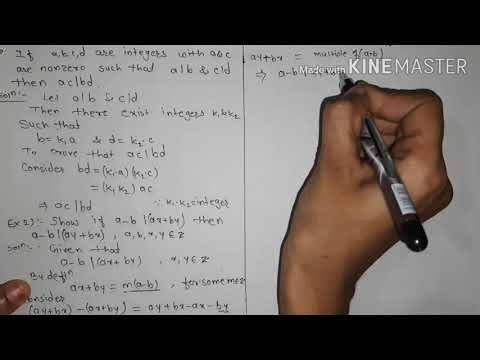 If a,b,c,d are integers with a & c
are nonzero such that a|b & c|d
then ac|bd.
Soln:- Let a|b & c|d
Then there exist integers k₁ & k₂
Such that
b = k₁a & d = k₂·c
To prove that ac|bd
Consider bd = (k₁a)(k₂·c)
= (k₁k₂) ac
⇒ ac|bd ∵ k₁·k₂=integer
Ex 2) :- Show if a-b|(ax+by) then
a-b|(ay+bx), a,b,x,y∈Z
Soln:- Given that
a-b|(ax+by), x,y∈Z
By defn
ax+by = m(a-b), for some m∈Z
Consider
(ay+bx)-(ax+by) = ay+bx-ax-by
ay+bx = multiple of (a-b)
⇒ a-b
Made with KINEMASTER